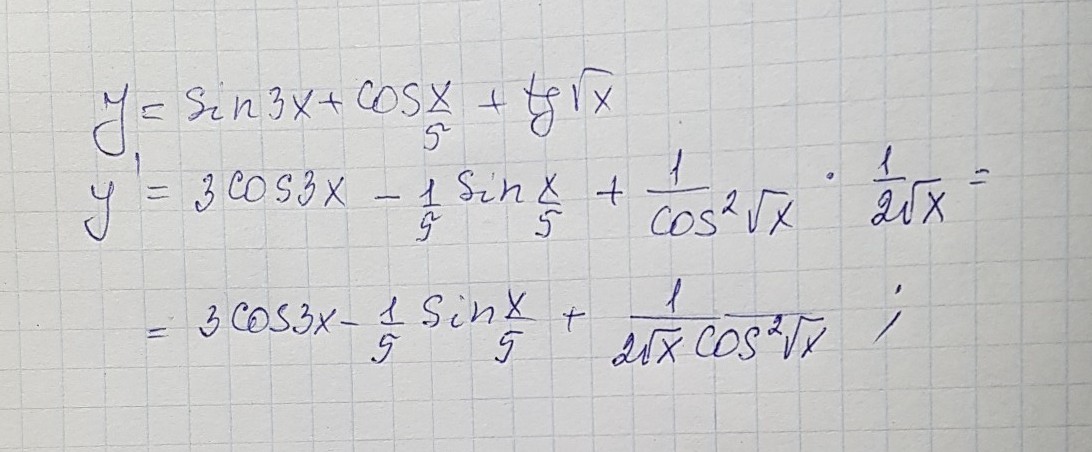 y = sin3x + cos x/5 + tg√x
y' = 3cos3x - 1/5 sin x/5 + 1/cos²√x · 1/2√x =
= 3cos3x - 1/5 sin x/5 + 1/2√x cos²√x ;